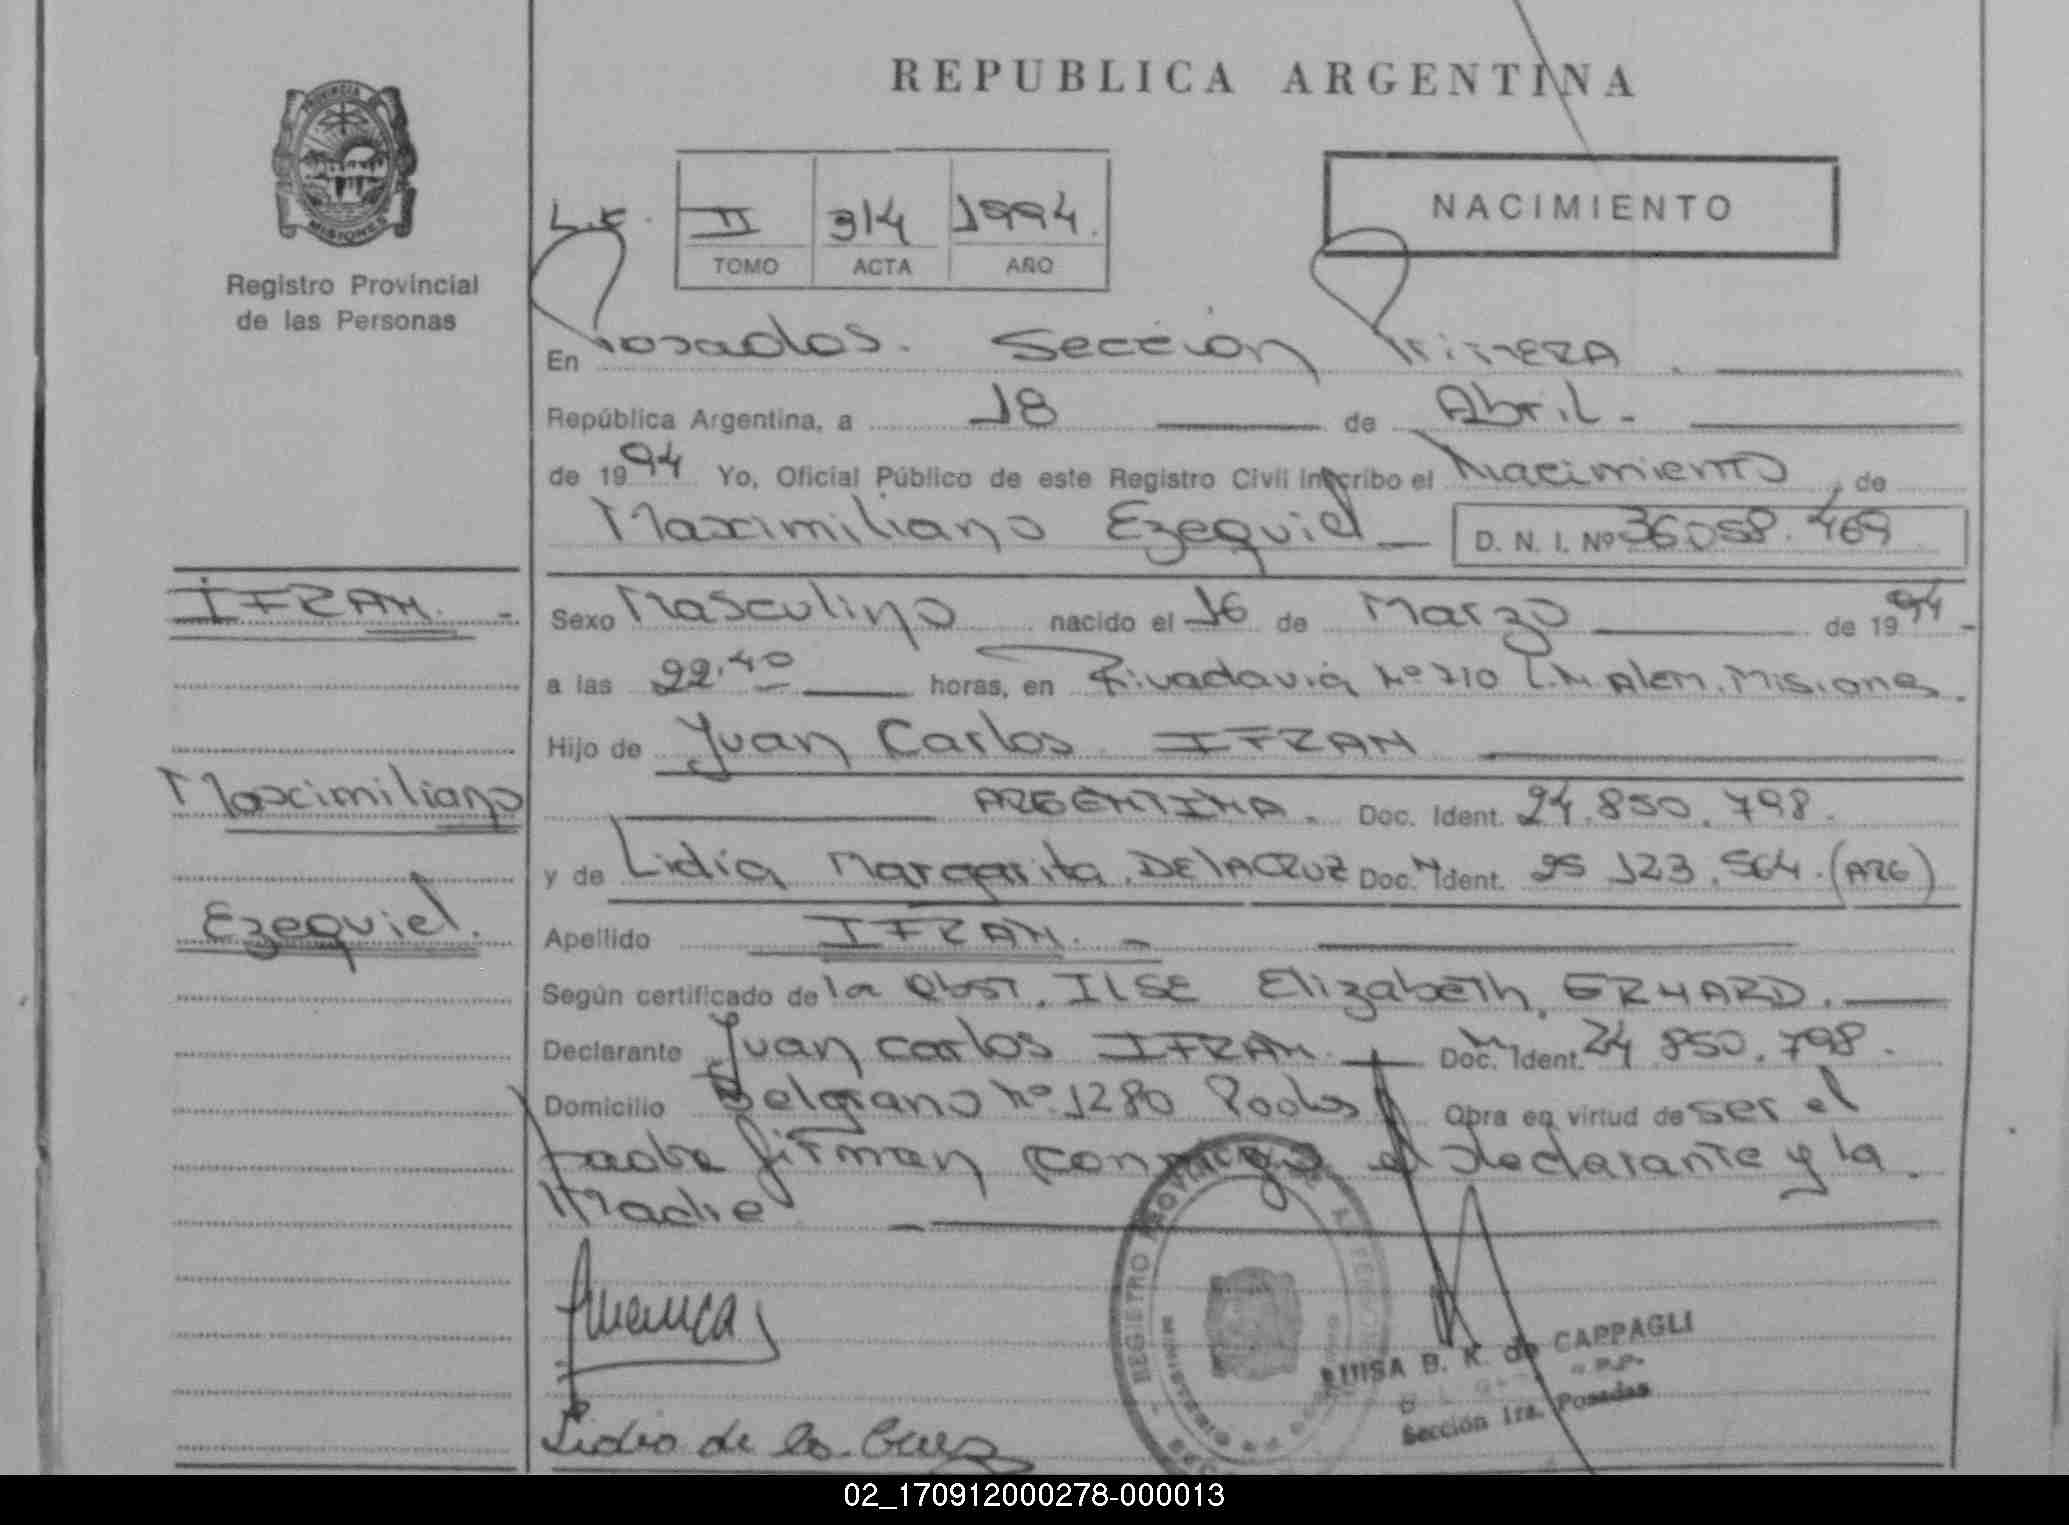 REPUBLICA ARGENTINA
PROVINCIA
MISIONES
Registro Provincial
de las Personas
L.E.
II 314 1994.
TOMO ACTA AÑO
NACIMIENTO
En Posadas. Sección Primera.
República Argentina, a 18 de Abril -
de 1994 Yo, Oficial Público de este Registro Civil inscribo el Nacimiento, de
Maximiliano Ezequiel - D. N. I. Nº 36.058.469
IFRAN. -
Sexo Masculino nacido el 16 de Marzo de 1994 -
a las 22.40 horas, en Rivadavia Nº 210 L.N Alem. Misiones.
Hijo de Juan Carlos IFRAN
Maximiliano
ARGENTINA. Doc. Ident. 24.850.798.
y de Lidia Margarita, DE LA CRUZ Doc. Ident. 25 123.564. (ARG)
Ezequiel.
Apellido IFRAN. -
Según certificado de la Obst. ILSE Elizabeth, ERHARD.
Declarante Juan Carlos IFRAN. Doc. Ident. 24 850.798.
Domicilio Belgrano Nº 1280 Pdas Obra en virtud de ser el
padre firman conmigo el declarante y la
Madre
REGISTRO PROVINCIAL
LUISA B. K. de CAPPAGLI
Sección 1ra. Posadas
Lidia de la Cruz
02_170912000278-000013